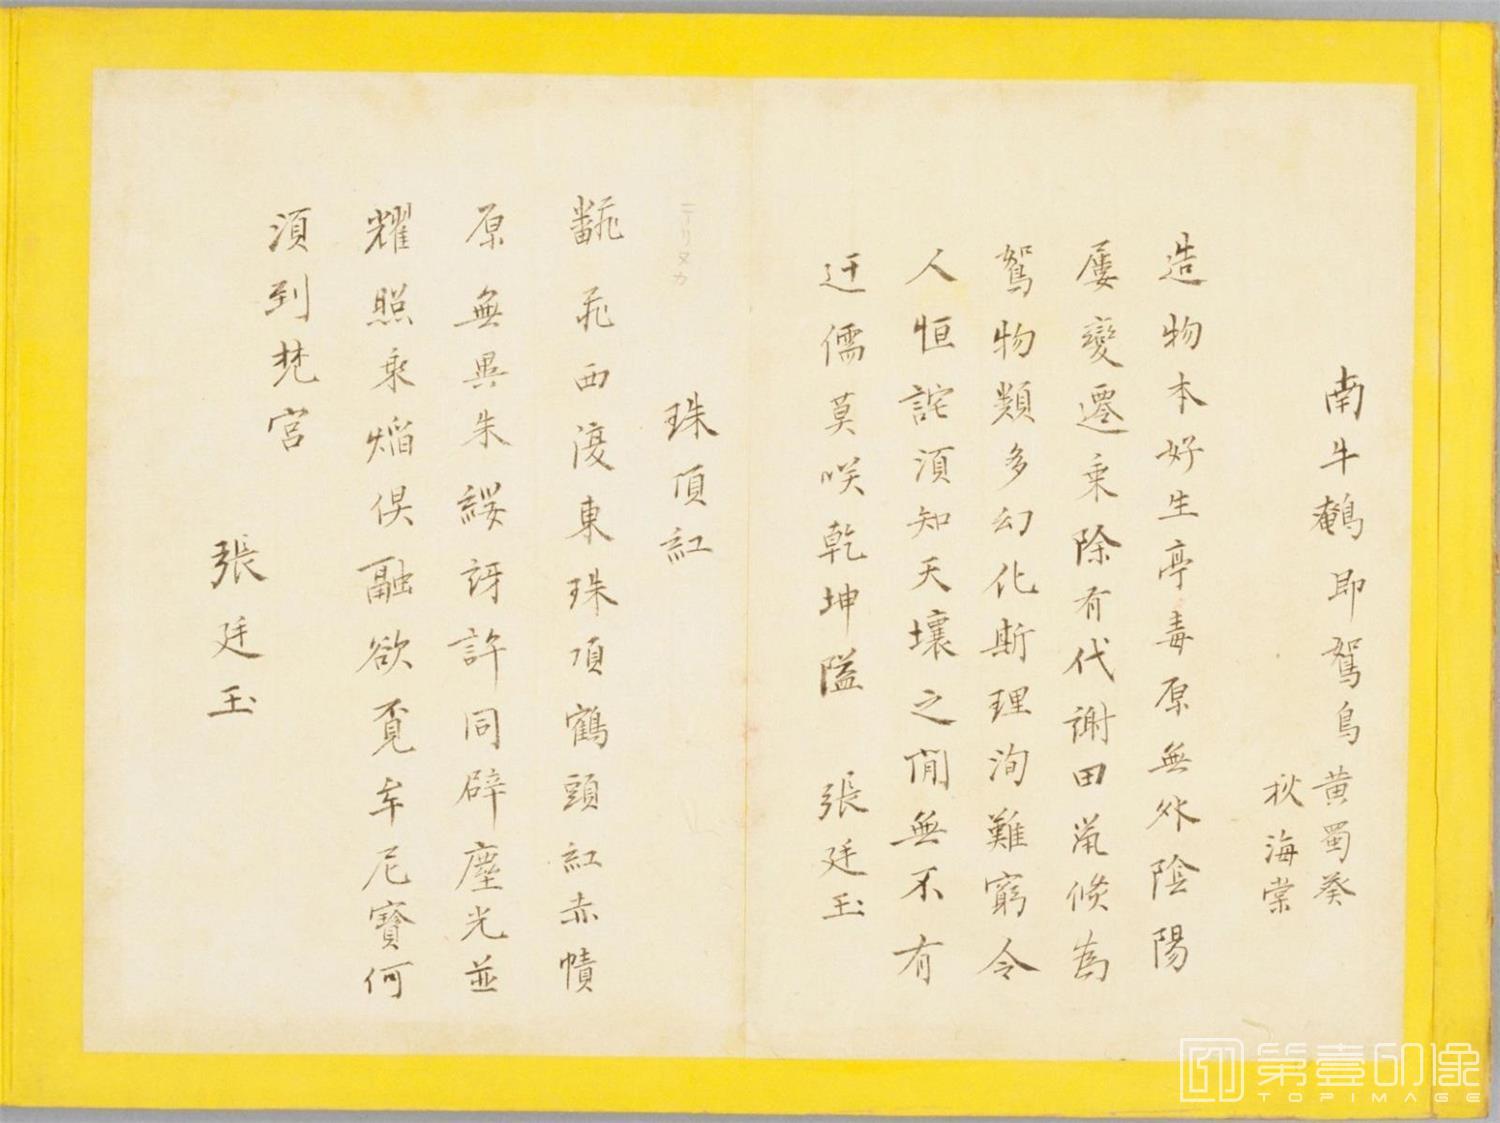 南牛鵪即鴽鳥黄蜀葵
秋海棠
造物本好生亭毒原無外陰陽
屢變遷乘除有代謝田䑕倏為
鴽物類多幻化斯理洵難窮令
人恒詫須知天壤之間無不有
迂儒莫咲乾坤隘 張廷玉
珠頂紅
翻飛西復東珠頂鶴頭紅赤幘
原無異朱綬訝許同辟塵光並
耀照乘焰俱融欲覔牟尼寳何
須到梵宮
張廷玉
ニーリヌカ
第壹印像
TOPIMAGE